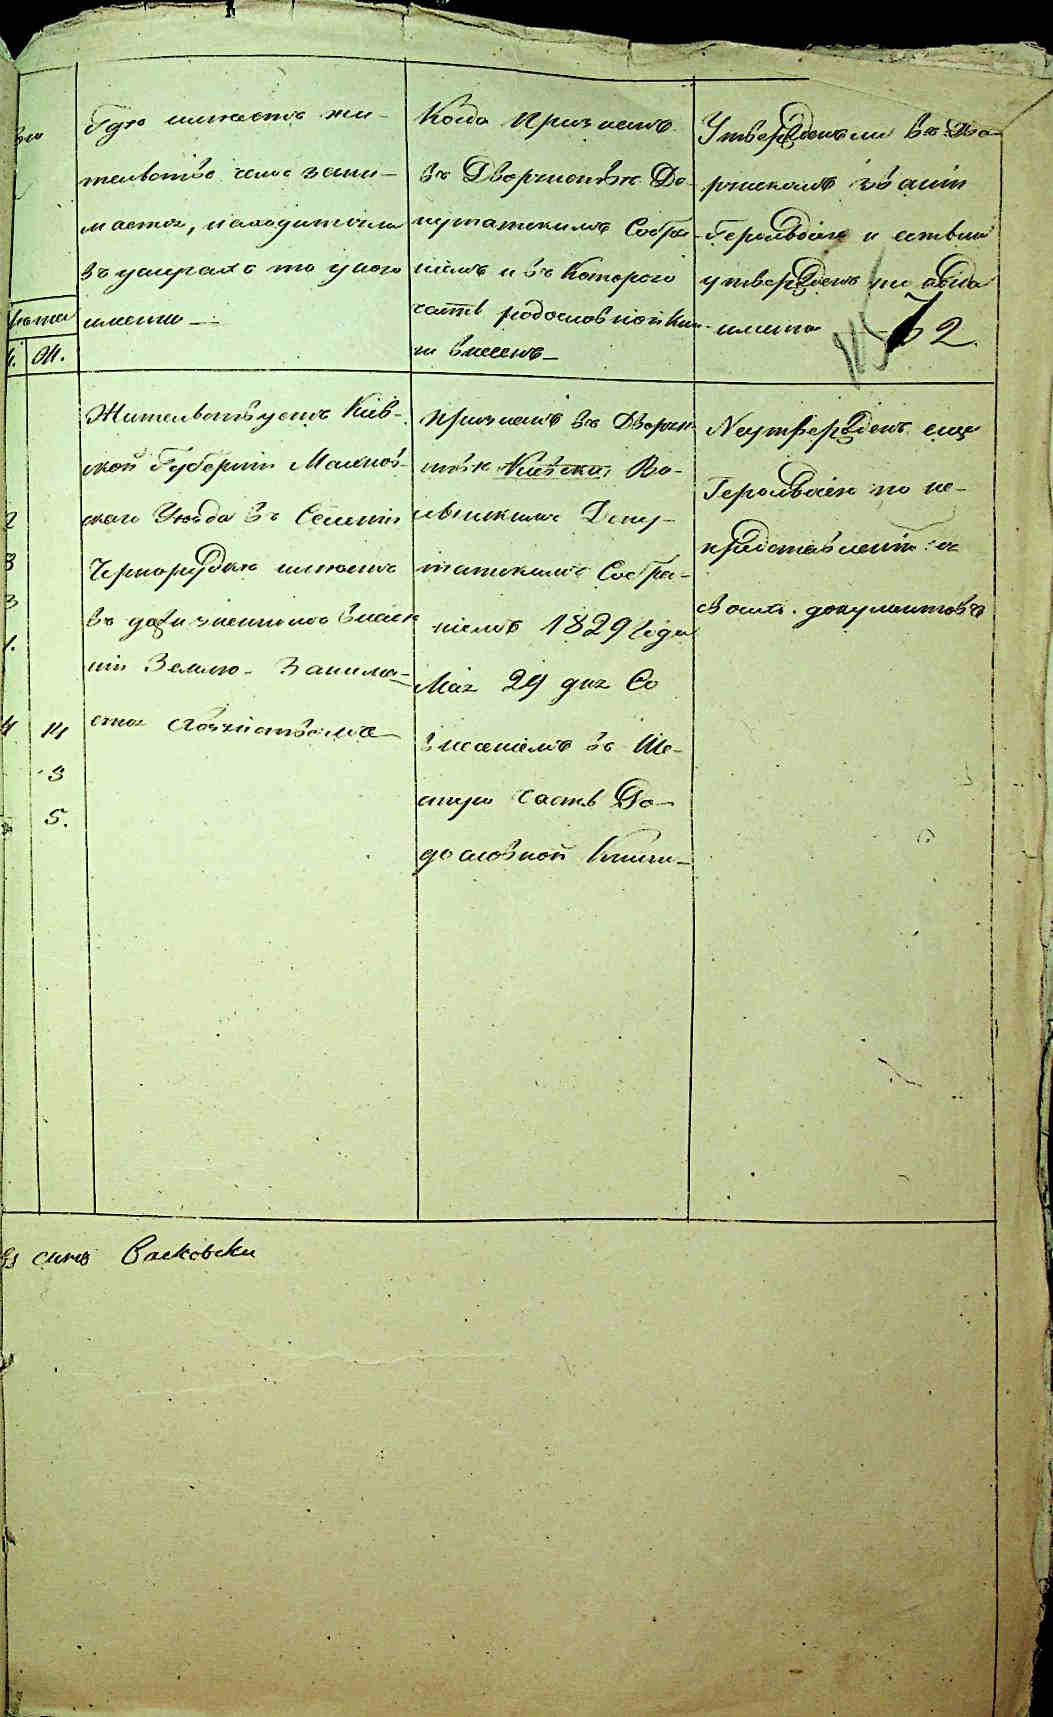 Гдѣ имѣетъ жи-
тельство чемъ зани-
мается, находится ли
въ услугахъ то у кого
именно —
Когда признанъ
въ Дворянствѣ Де-
путатскимъ Собра-
ніемъ и въ Которую
часть родословной Кни-
ги внесенъ —
Утвержденъ ли въ Дво-
рянскомъ званіи
Герольдіею и естьли
утвержденъ
именно
72.
лѣта
М.
Жительствуетъ Кіев-
ской Губерніи Махнов-
скаго Уѣзда въ Селеніи
Чернорудкѣ имѣетъ
въ
Землю. Занима-
ется
14
3
5.
признанъ въ Дворян-
ствѣ Кіевскимъ Во-
Депу-
татскимъ Собра-
ніемъ 1829 Года
Мая 29 дня Со
внесеніемъ въ Ше-
стую Часть Ро-
дословной Книги —
Неутвержденъ еще
Герольдіею по не-
представленію
документовъ
сынъ Васковски